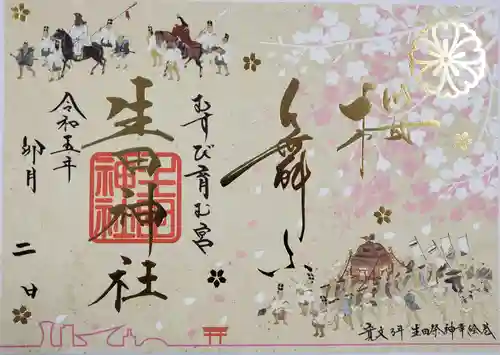 櫻
舞ふ
むすび育む宮
生田神社
令和五年
卯月
二日
生田神社
生田祭神幸絵巻